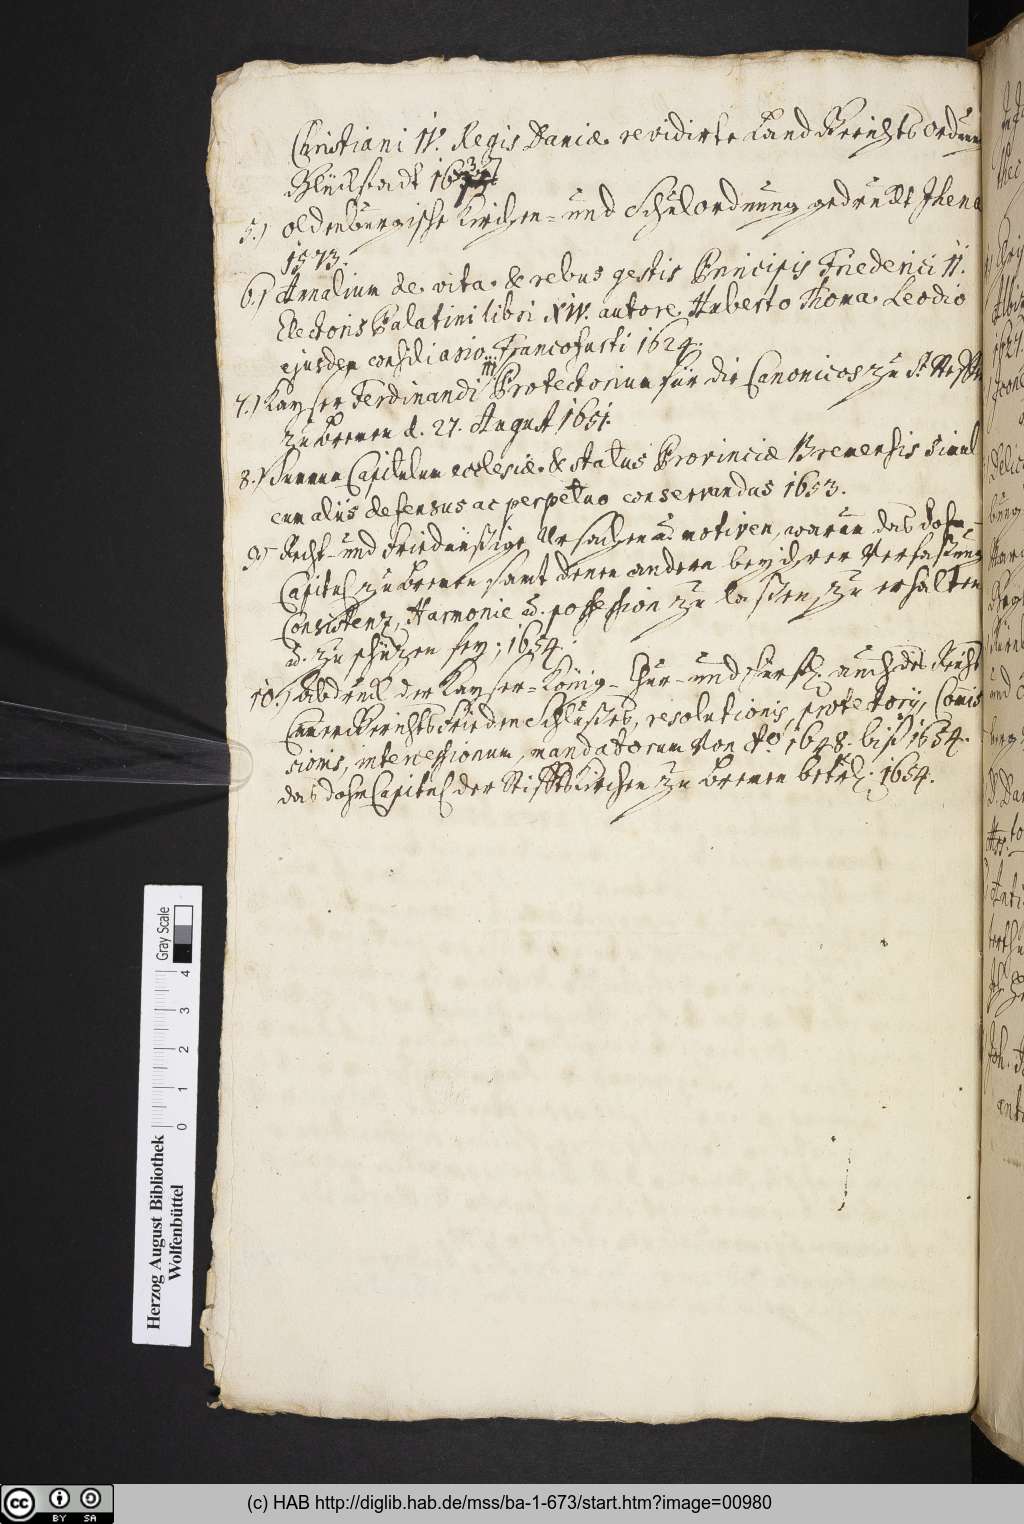 Christiani IV. Regis Daniæ. revidirte Land Gerichts ordnung
Glückstadt 1637
5.) oldenburgische Kirchen- und Schulordnung gedruckt Jhena
1573.
6.) Annalium de. vita. & rebus gestis Principis Friederici II.
Electoris Palatini libri XIV. autore. Huberto Thoma. Leodio
ejusdem consiliario. Francofurti 1624.
7.) Kayser Ferdinandi III Protectorium für die Canonicos zu St.
zu Bremen d. 27. August 1651.
8.) Summum Capitulum ecclesiæ. & status Provinciæ Bremensis simul
cum aliis defensus ac perpetuo conservandus 1653.
9.) Recht- und Friedmäßige Ursachen ud motiven, warum das dohm-
Capitul zu Bremen samt denen andern bey ihrer Verfaßung
Consistenz, Harmonie ud. possession zu laßen, zu erhalten
ud. zu schüzen sey; 1654.
10.) Abdruck der Kayser- König- Chur- und fürstl. auch des Reichs
Camer Gerichts Frieden Schlußes, resolutionis, protectorij, Comis
sionis, intercessionum, mandatorum von Ao 1648. biß 1654.
das dohm Capitul der Stifts Kirchen zu Bremen betrl. 1654.
Herzog August Bibliothek
Wolfenbüttel
0 1 2 3 4
Gray Scale
cc BY SA
(c) HAB http://diglib.hab.de/mss/ba-1-673/start.htm?image=00980